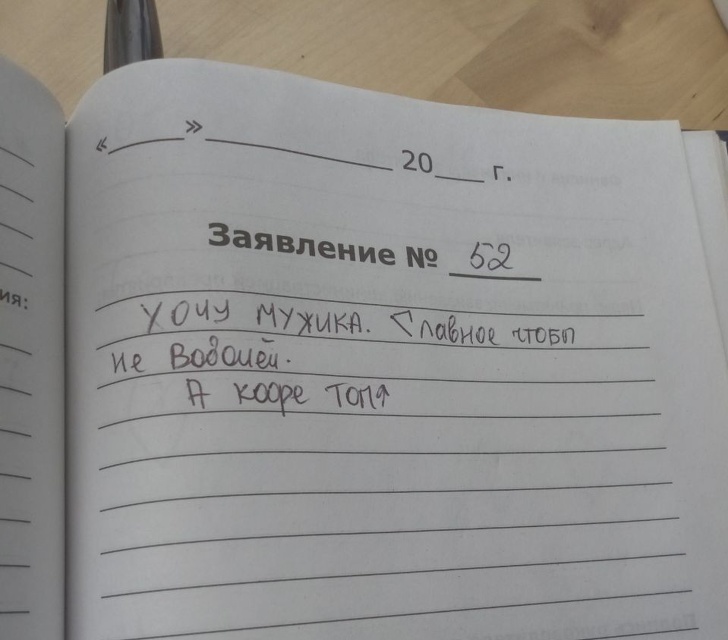 «____»______________ 20___ г.
Заявление № 52
ия:
Хочу мужика. Главное чтобы
не Водолей.
А кофе топ↑